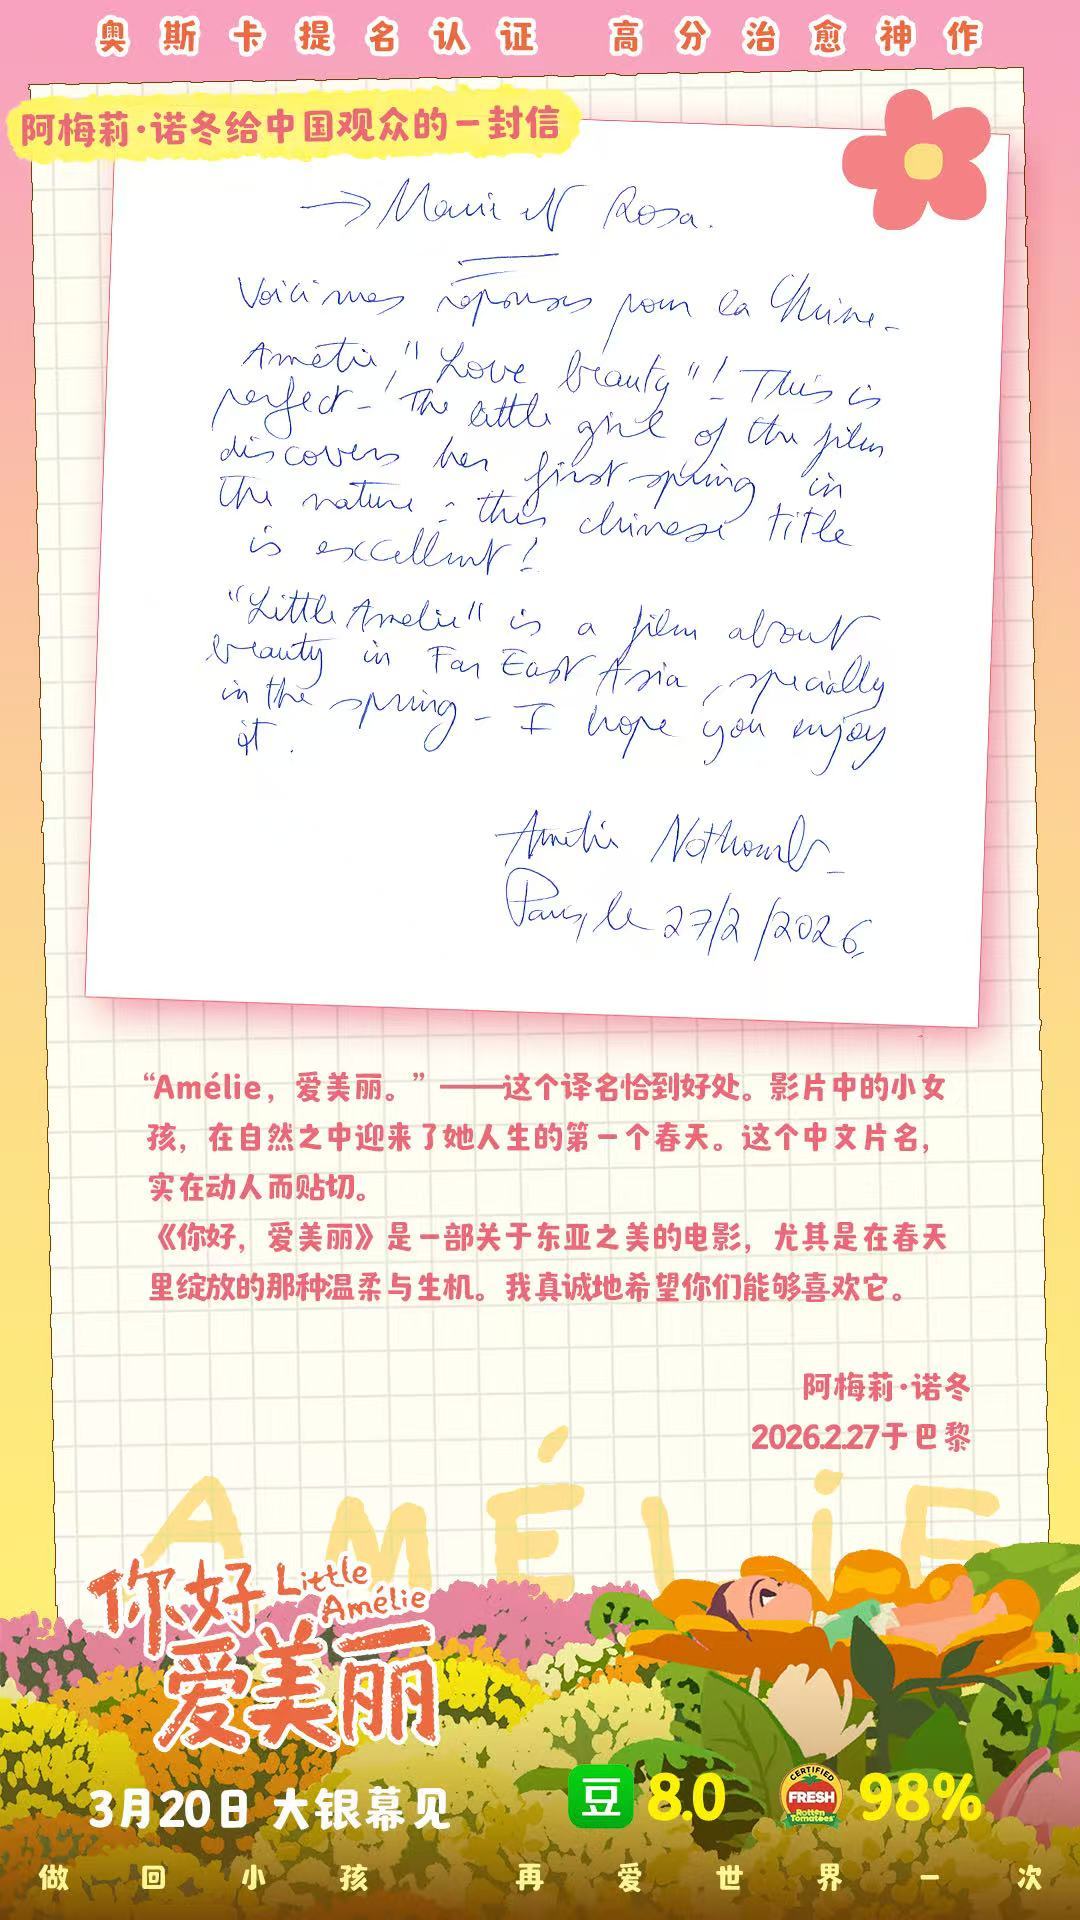 奥斯卡提名认证 高分治愈神作
阿梅莉·诺冬给中国观众的一封信
→ Marie et Rosa.
Voici mes réponses pour la Chine.
Amélie, "Love beauty"! This is
perfect - The little girl of the film
discovers her first spring in
the nature : this chinese title
is excellent!
"Little Amélie" is a film about
beauty in Far East Asia, specially
in the spring - I hope you enjoy
it.
Amélie Nothomb -
Paris, le 27/2/2026.
“Amélie，爱美丽。”——这个译名恰到好处。影片中的小女
孩，在自然之中迎来了她人生的第一个春天。这个中文片名，
实在动人而贴切。
《你好，爱美丽》是一部关于东亚之美的电影，尤其是在春天
里绽放的那种温柔与生机。我真诚地希望你们能够喜欢它。
阿梅莉·诺冬
2026.2.27于巴黎
AMÉLiE
你好 Little
Amélie
爱美丽
3月20日 大银幕见 豆 8.0 CERTIFIED FRESH Rotten Tomatoes 98%
做回小孩 再爱世界一次